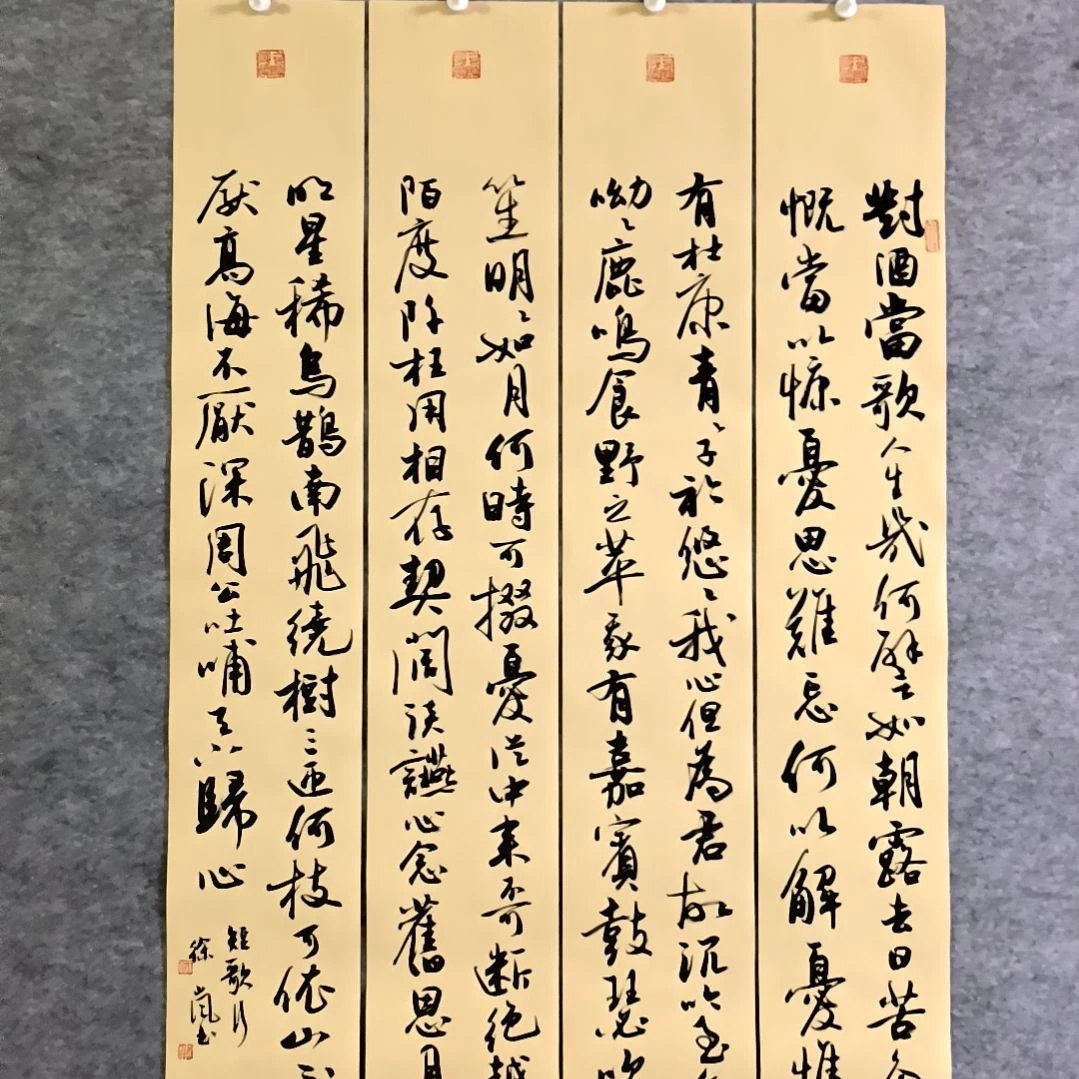 對酒當歌人生幾何譬如朝露去日苦
慨當以慷憂思難忘何以解憂惟
有杜康青〻子衿悠〻我心但為君故沉吟至
呦〻鹿鳴食野之苹我有嘉賓鼓瑟吹
笙明〻如月何時可掇憂從中來不可斷絕越
陌度阡枉用相存契闊談讌心念舊恩月
明星稀烏鵲南飛繞樹三匝何枝可依山不
厭高海不厭深周公吐哺天下歸心
短歌行
徐嵐书